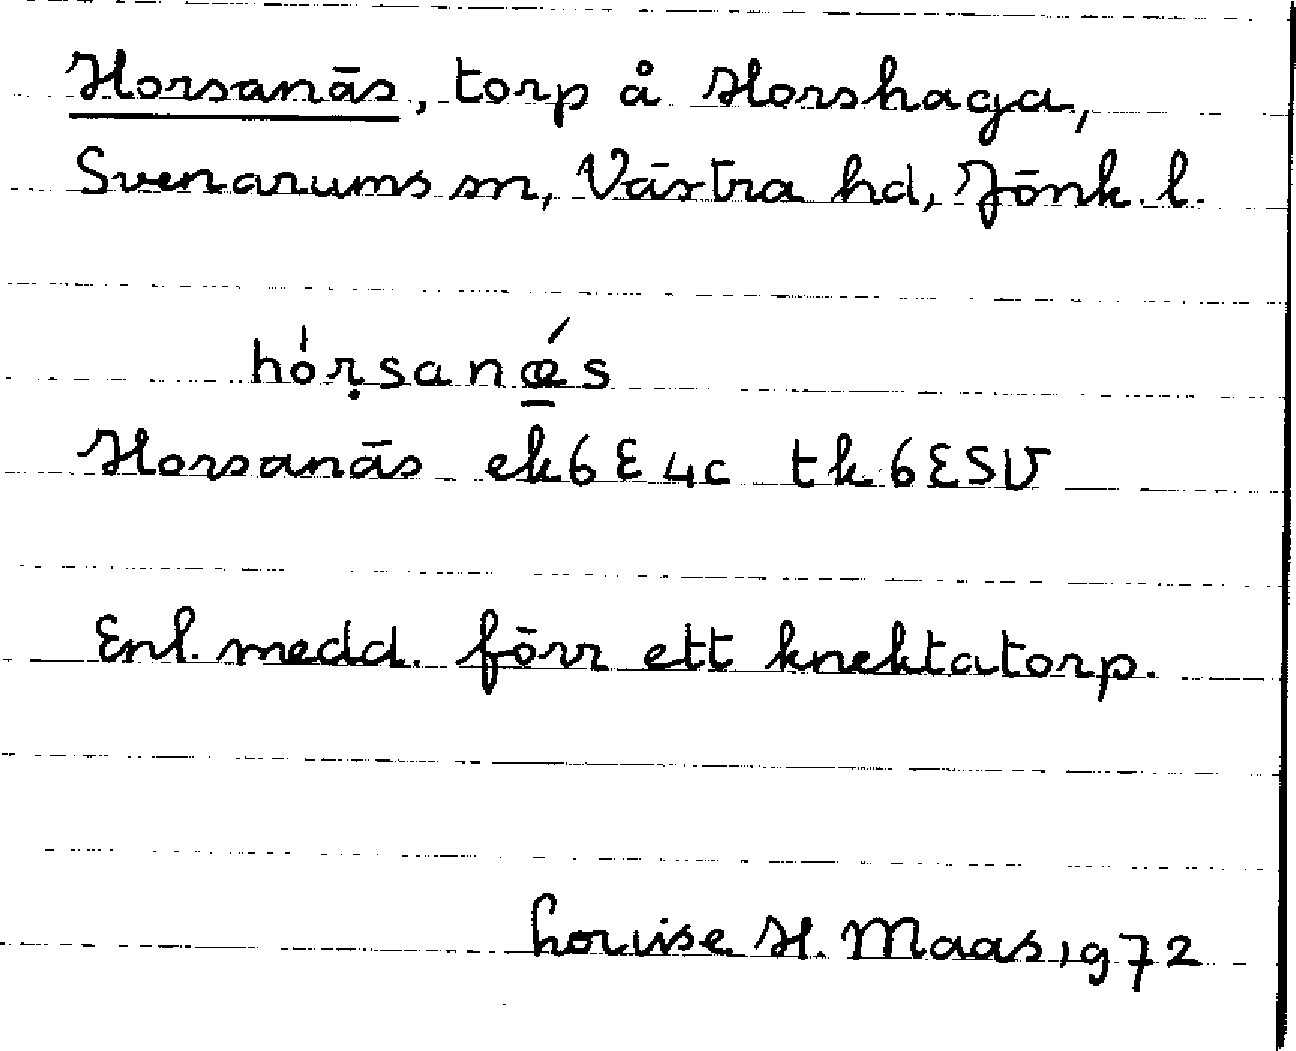 Horsanäs, torp å Horshaga,
Svenarums sn, Västra hd, Jönk. l.
hórṣanǽs
Horsanäs ek 6E 4c tk 6ESV
Enl. medd. förr ett knektatorp.
Louise H. Maas 1972